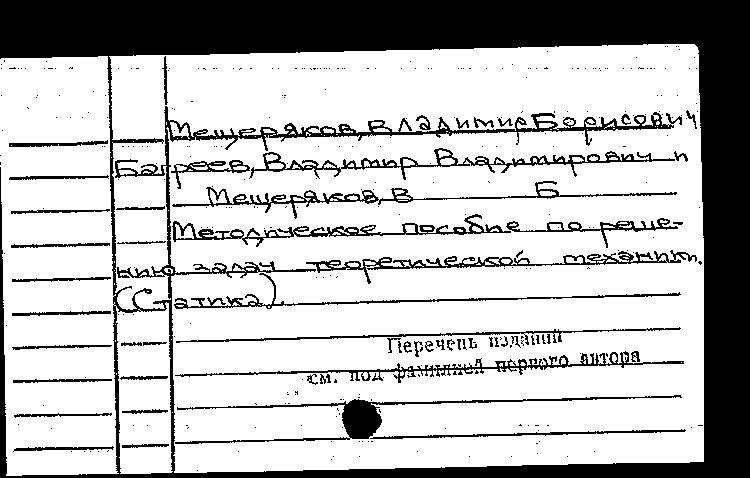 Мещеряков, Владимир Борисович
Багреев, Владимир Владимирович и
Мещеряков, В Б
Методическое пособие по реше-
нию задач теоретической механики.
(Статика).
Перечень изданий
см. под фамилией первого автора